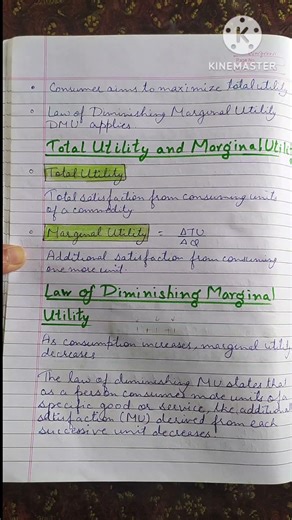 MADE WITH
KINEMASTER
• Consumer aims to maximize total utility
• Law of Diminishing Marginal Utility
DMU applies
Total Utility and Marginal Utility
• Total Utility
Total satisfaction from consuming units
of a commodity
• Marginal Utility = ΔTU
ΔQ
Additional satisfaction from consuming
one more unit
Law of Diminishing Marginal
Utility
As consumption increases, marginal utility
decreases
The law of diminishing MU states that
as a person consumes more units of a
specific good or service, the additional
satisfaction (MU) derived from each
successive unit decreases.